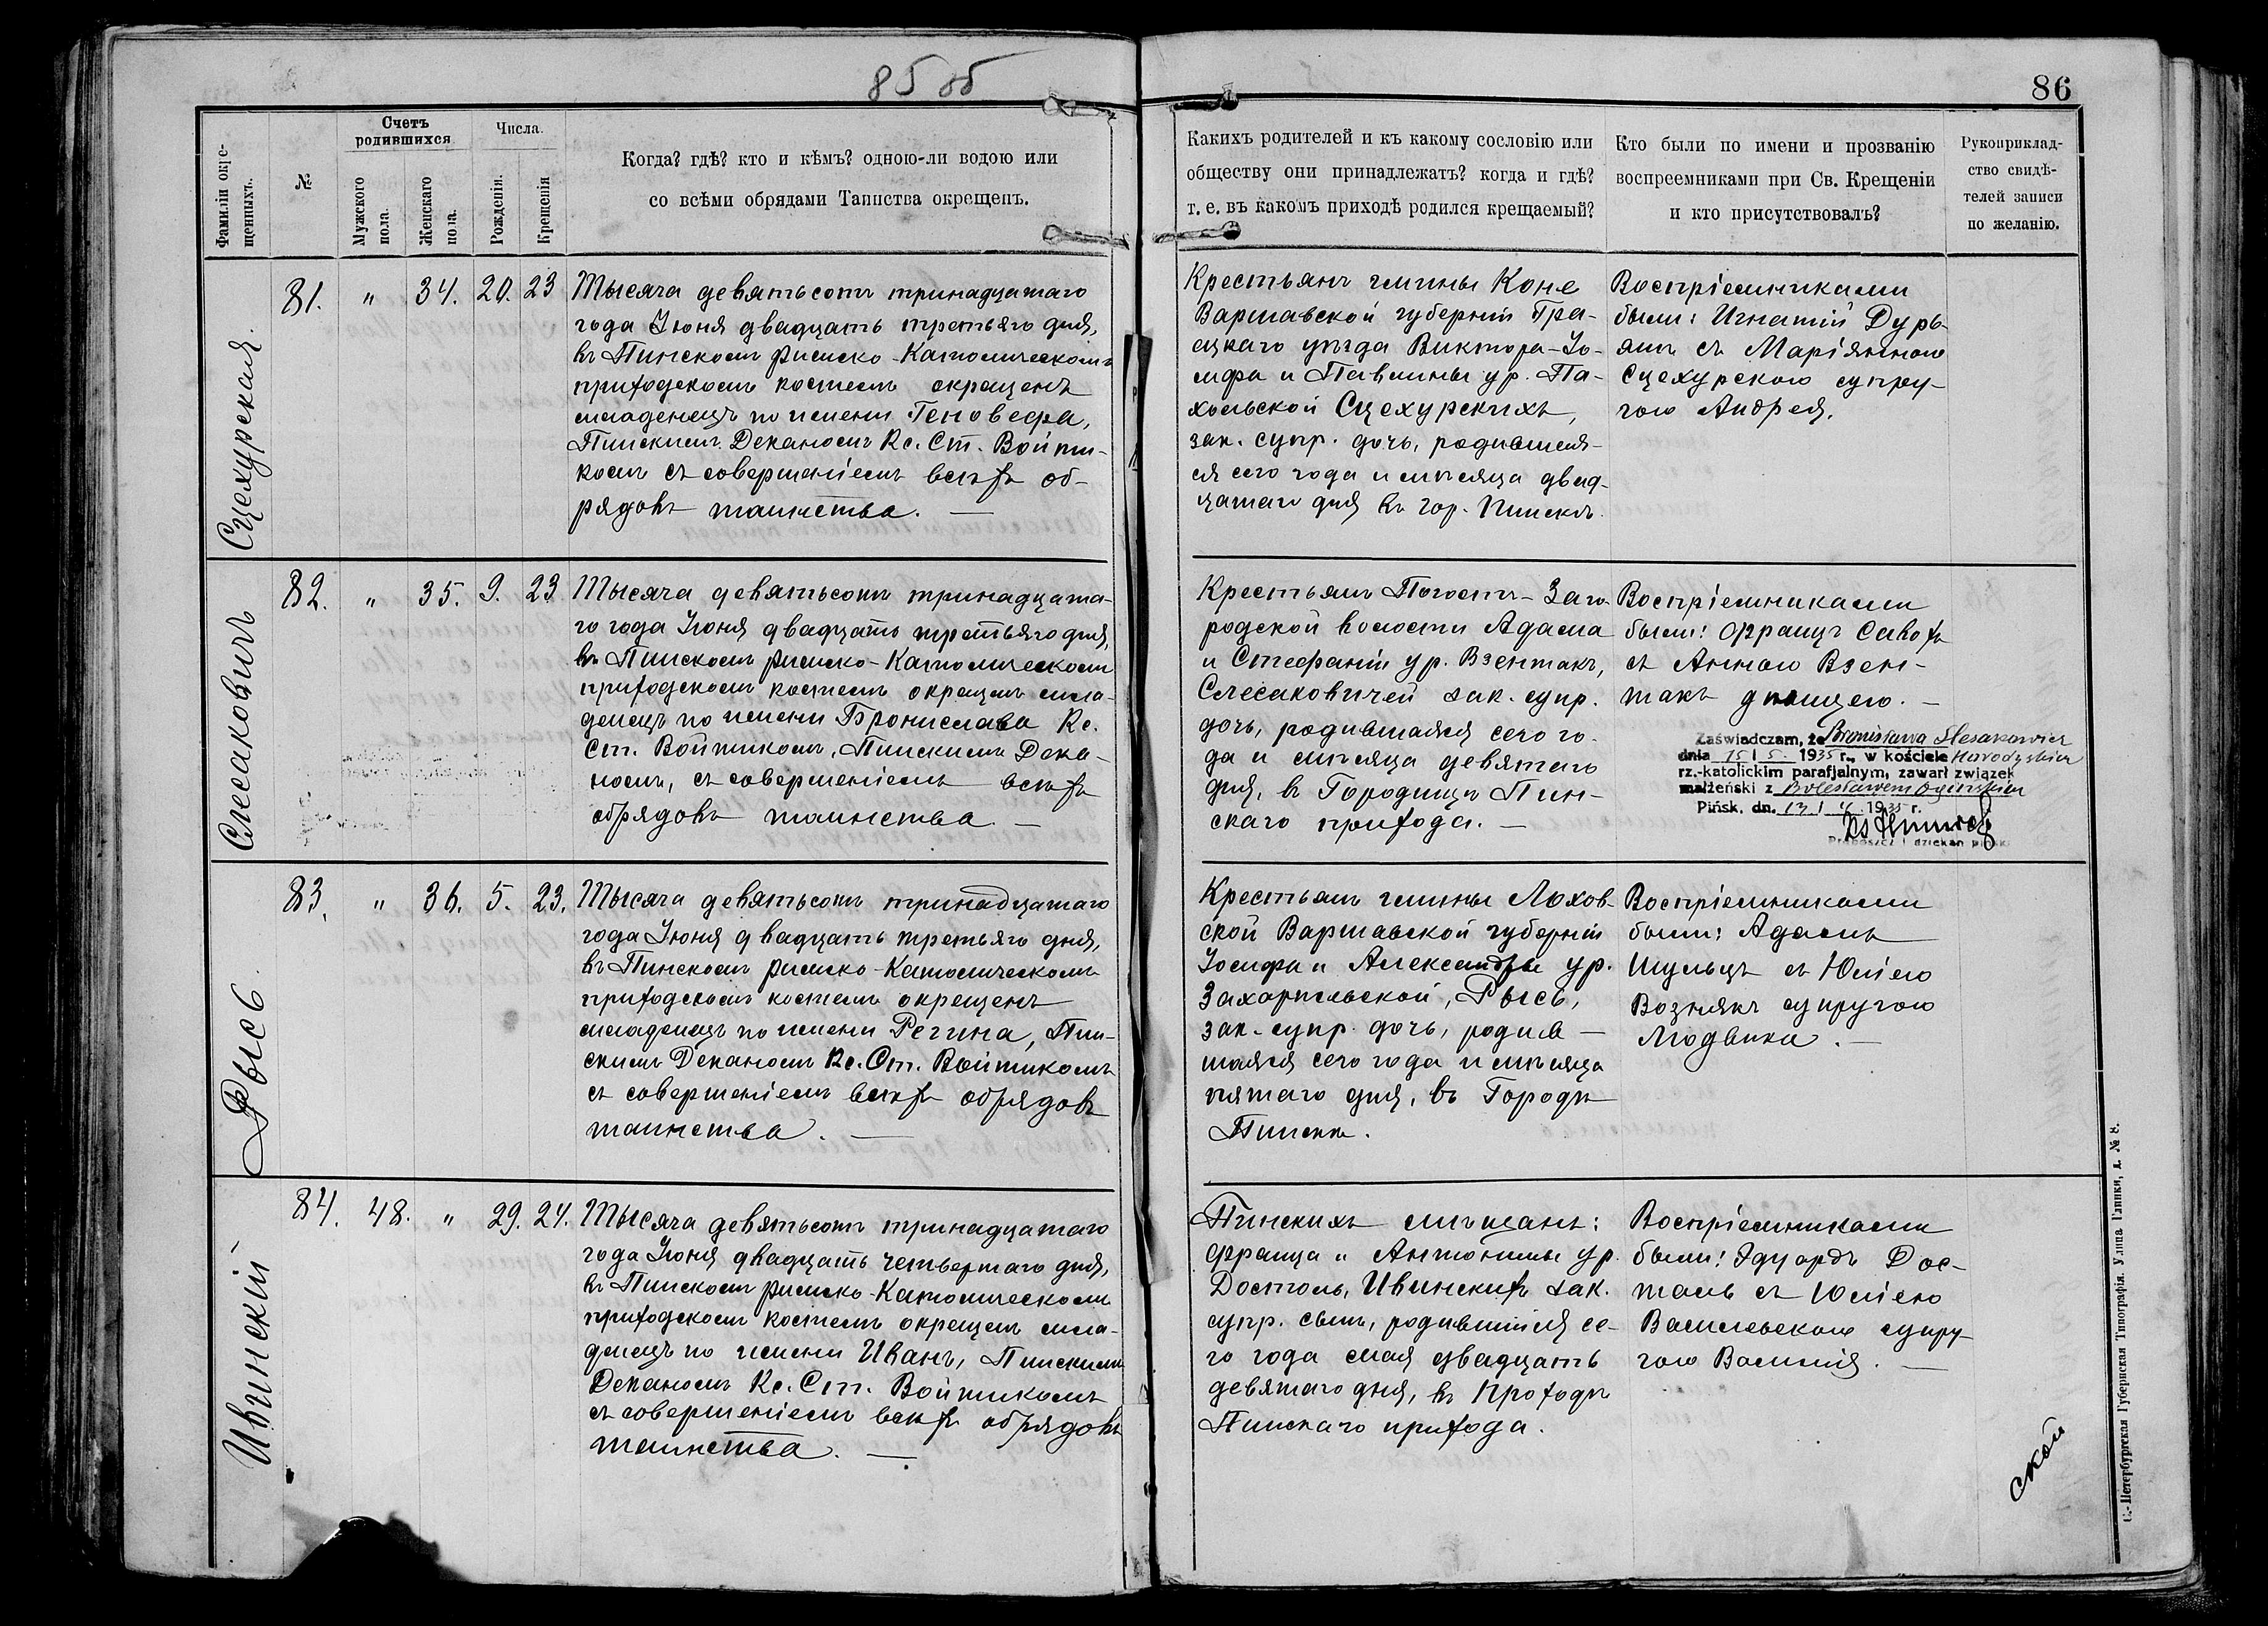 85 об
86
Фамиліи окре-
щенныхъ.
№
Счетъ
родившихся
Мужского
пола.
Женскаго
пола.
Числа.
Рожденія.
Крещенія
Когда? гдѣ? кто и кѣмъ? одною-ли водою или
со всѣми обрядами Таинства окрещенъ.
Какихъ родителей и къ какому сословію или
обществу они принадлежатъ? когда и гдѣ?
т. е. въ какомъ приходѣ родился крещаемый?
Кто были по имени и прозванію
воспреемниками при Св. Крещеніи
и кто присутствовалъ?
Рукоприклад-
ство свидѣ-
телей записи
по желанію.
Сцехурская.
81. " 34. 20. 23
Тысяча девятьсотъ тринадцатаго
года Іюня двадцать третьяго дня,
въ Пинскомъ Римско-Католическомъ
приходскомъ костелѣ окрещенъ
младенецъ по имени Геновефа,
Пинскимъ Деканомъ Кс. Ст. Войти-
комъ съ совершеніемъ всѣхъ об-
рядовъ таинства. —
Крестьянъ гмины Коне
Варшавской губерніи Гро-
ецкаго уѣзда Виктора-Іо-
сифа и Павлины ур. Па-
хольской Сцехурскихъ,
зак. супр. дочь, родившая-
ся сего года и мѣсяца двад-
цатаго дня въ гор. Пинскѣ.
Воспріемниками
были: Игнатій Дурь-
яшъ съ Маріянною
Сцехурскою супру-
гою Андрея.
Слесаковичъ
82. " 35. 9. 23
Тысяча девятьсотъ тринадцата-
го года Іюня двадцать третьяго дня,
въ Пинскомъ Римско-Католическомъ
приходскомъ костелѣ окрещенъ мла-
денецъ по имени Бронислава Кс.
Ст. Войтикомъ, Пинскимъ Дека-
номъ, съ совершеніемъ всѣхъ
обрядовъ таинства. —
Крестьянъ Погостъ-Заго-
родской волости Адама
и Стефаніи ур. Взентакъ,
Слесаковичей зак. супр.
дочь, родившаяся сего го-
да и мѣсяца девятаго
дня, въ Городищѣ Пин-
скаго прихода. —
Воспріемниками
были: Францъ Савохъ
съ Анною Взен-
такъ дѣвицею. —
Zaświadczam, że Bronisława Slesakowicz
dnia 15 | 5. 1935 r., w kościele Horodyskim
rz.-katolickim parafjalnym, zawarł związek
małżeński z Bolesławem Ogińskim
Pińsk, dn. 13 | 1935 r.
Proboszcz i dziekan piński
Рысь.
83. " 36. 5. 23.
Тысяча девятьсотъ тринадцатаго
года Іюня двадцать третьяго дня,
въ Пинскомъ Римско-Католическомъ
приходскомъ костелѣ окрещенъ
младенецъ по имени Регина, Пин-
скимъ Деканомъ Кс. Ст. Войтикомъ
съ совершеніемъ всѣхъ обрядовъ
таинства. —
Крестьянъ гмины Лохов-
ской Варшавской губерніи
Іосифа и Александры ур.
Захарпольской, Рысь,
зак. супр. дочь, родив —
шаяся сего года и мѣсяца
пятаго дня, въ Городѣ
Пинскѣ.
Воспріемниками
были: Адамъ
Шульцъ съ Юліею
Вознякъ супругою
Людвика. —
Ивинскій
84. 48. " 29. 24.
Тысяча девятьсотъ тринадцатаго
года Іюня двадцать четвертаго дня,
въ Пинскомъ Римско-Католическомъ
приходскомъ костелѣ окрещенъ мла-
денецъ по имени Иванъ, Пинскимъ
Деканомъ Кс. Ст. Войтикомъ
съ совершеніемъ всѣхъ обрядовъ
таинства. —
Пинскихъ мѣщанъ:
Франца и Антонины ур.
Досталь, Ивинскихъ зак.
супр. сынъ, родившійся се-
го года мая двадцать
девятаго дня, въ
Пинскаго прихода.
Воспріемниками
были: Эдуардъ Дос-
таль съ Юліею
Василевскою супру-
гою Василія. —
ской
С.-Петербургская Губернская Типографія. Улица Глинки, д. № 8.